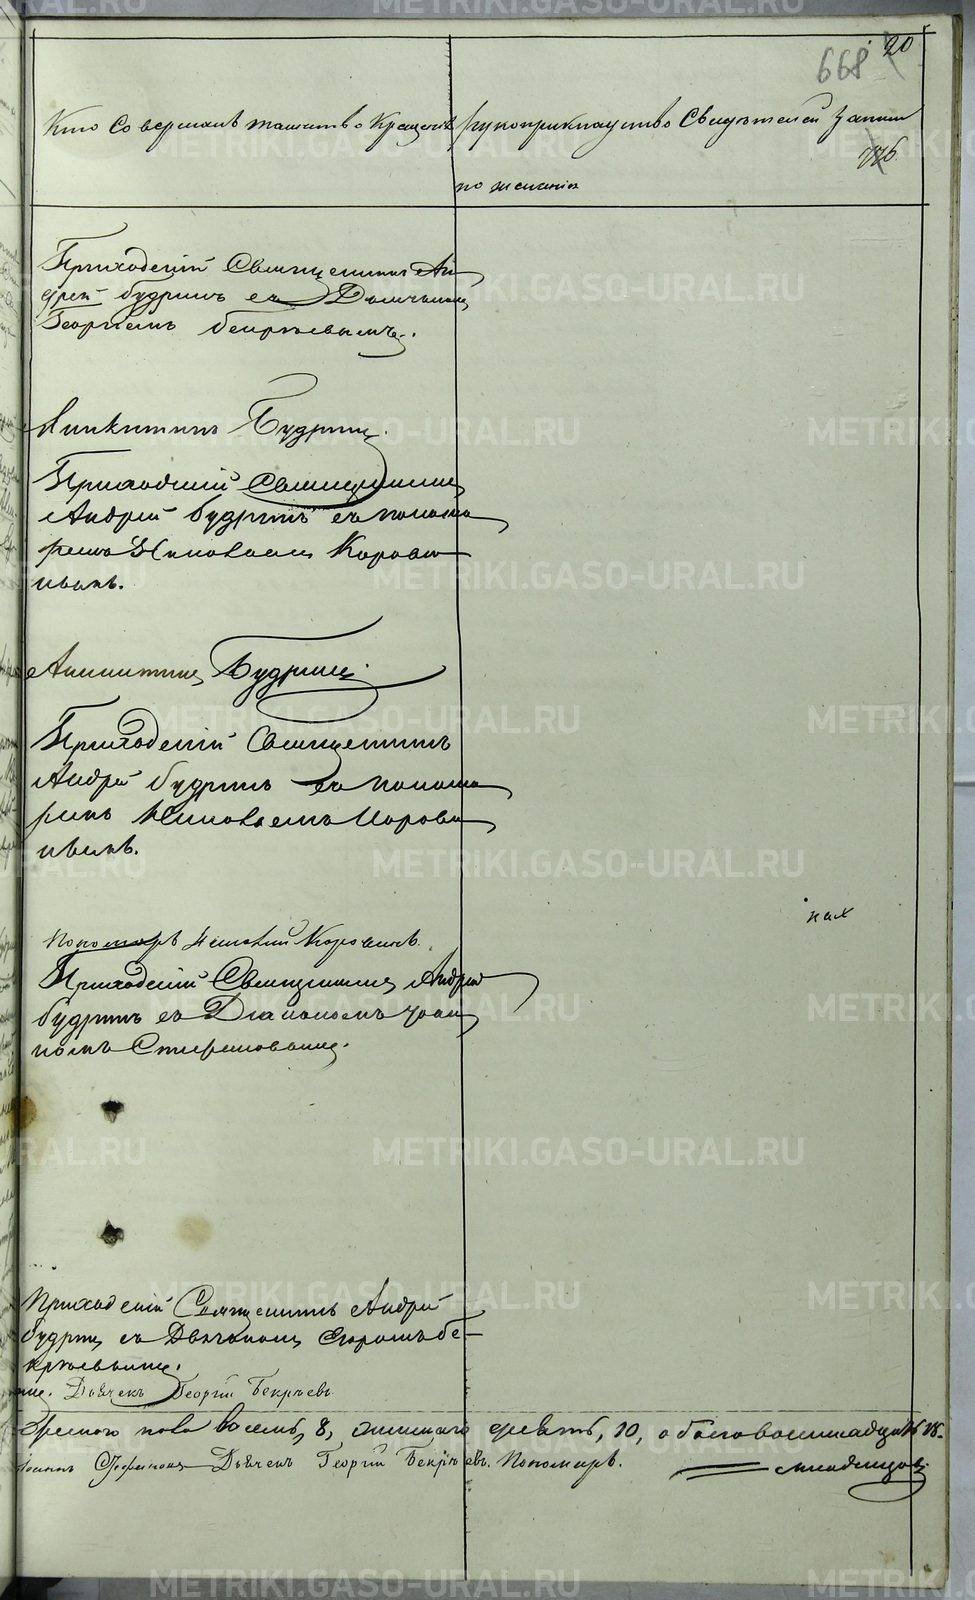 20
668
Кто совершалъ таинство Крещенія
рукоприкладство Свидѣтелей записи
776
по желанію
Приходскій Священникъ Ан
дрей Будринъ съ Дьячкомъ
Георгіемъ Бекрѣевымъ.
Будринъ.
Приходскій Священникъ
Андрей Будринъ съ понома
ремъ Корови
нымъ.
Будринъ
Приходскій Священникъ
Андрей Будринъ съ понома
ремъ Корови
нымъ.
Пономарь Коровинъ.
Приходскій Священникъ Андрей
Будринъ съ Діакономъ Іоан
номъ Стефановымъ.
Приходскій Священникъ Андрей
Будринъ съ Дьячкомъ Егоромъ Бе-
крѣевымъ.
Дьячекъ Георгій Бекрѣевъ
пола восемь, 8, женскаго 10, обоего восемнадцать 18.
младенцовъ.
Дьячекъ Георгій Бекрѣевъ. Пономарь.
METRIKI.GASO-URAL.RU